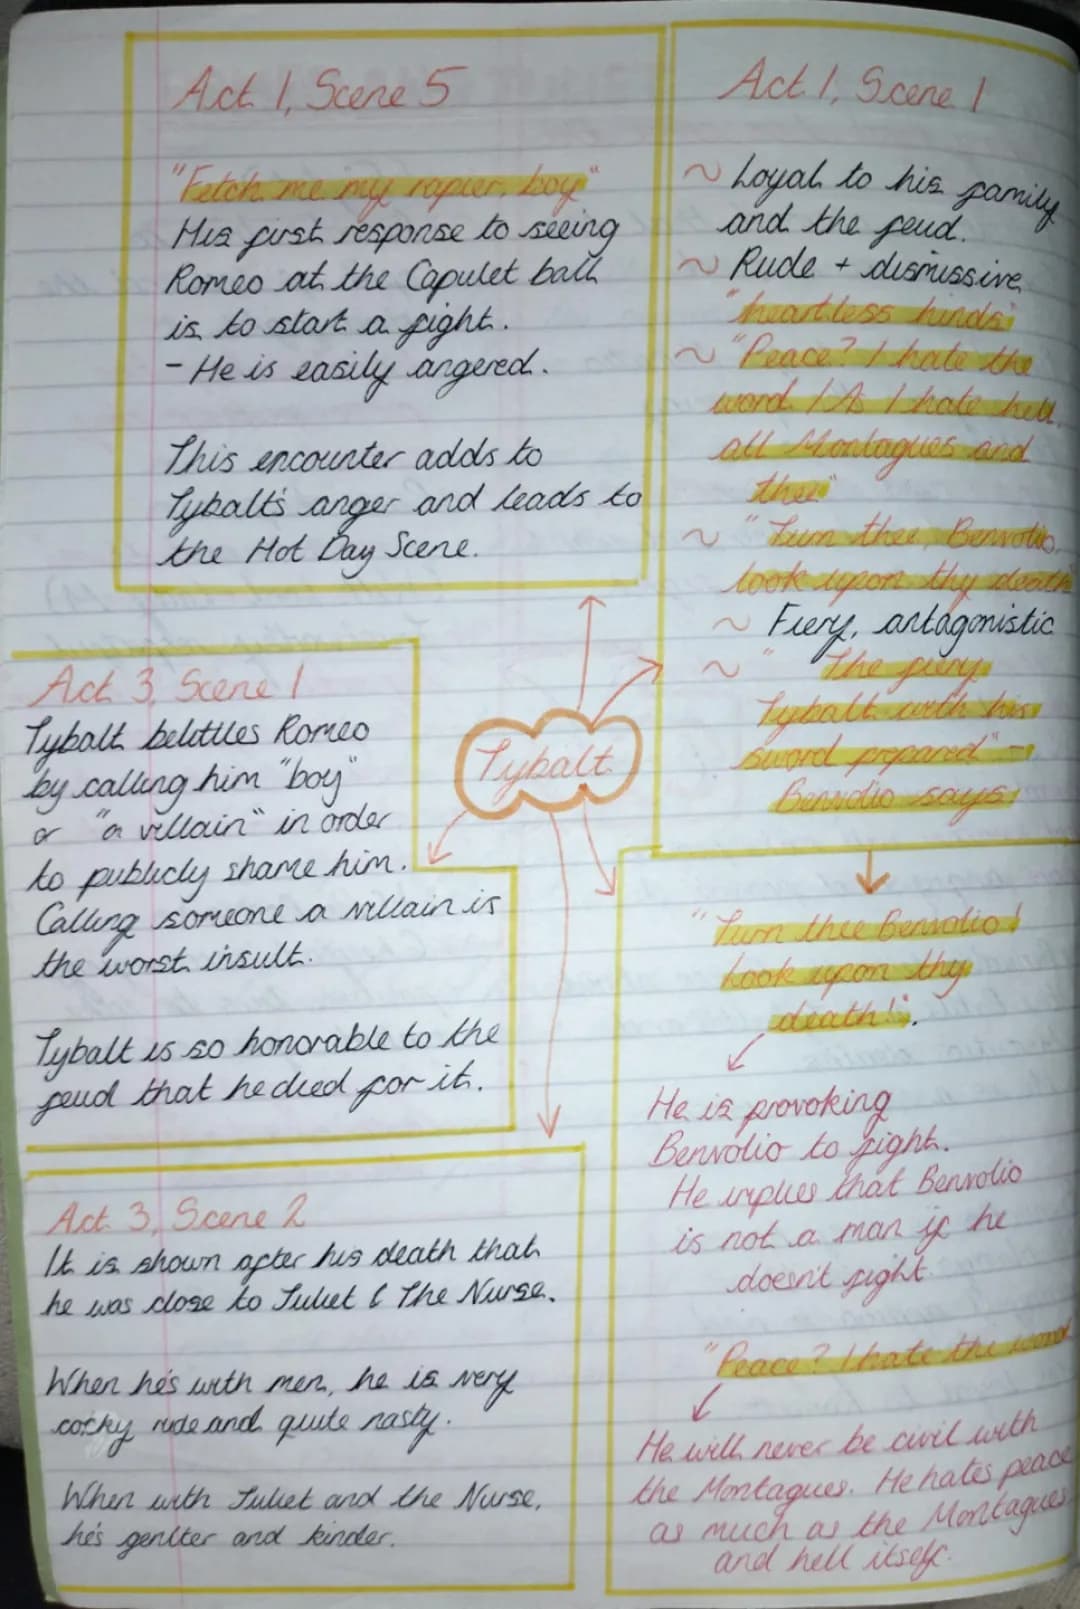 Act 1, Scene 5
"Fetch me my rapier, boy"
His first response to seeing
Romeo at the Capulet ball
is to start a fight.
- He is easily angered.
This encounter adds to
Tybalt's anger and leads to
the Hot Day Scene.
Act 1, Scene 1
~ Loyal to his family
and the feud.
~ Rude + dismissive
"heartless hinds"
~ "Peace? I hate the
word / As I hate hell,
all Montagues and
thee"
~ "Turn thee, Benvolio,
look upon thy death"
~ Fiery, antagonistic
~ "The fiery
Tybalt with his
sword prepared" -
Benvolio says
Tybalt
Act 3, Scene 1
Tybalt belittles Romeo
by calling him "boy"
or "a villain" in order
to publicly shame him.
Calling someone a villain is
the worst insult.
Tybalt is so honorable to the
feud that he died for it.
"Turn thee Benvolio!
Look upon thy
death!".
He is provoking
Benvolio to fight.
He implies that Benvolio
is not a man if he
doesn't fight.
"Peace? I hate the word
He will never be civil with
the Montagues. He hates peace
as much as the Montagues
and hell itself.
Act 3, Scene 2
It is shown after his death that
he was close to Juliet & The Nurse.
When he's with men, he is very
cocky rude and quite nasty.
When with Juliet and the Nurse,
he's genlter and kinder.